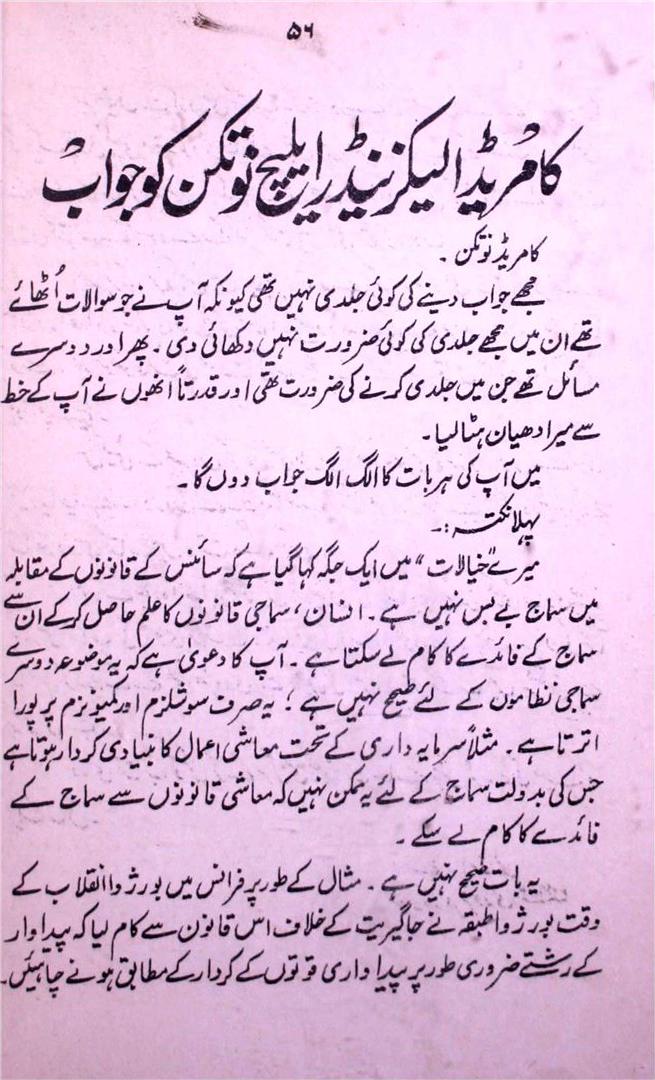 ۵۶
کامریڈ الیکزینڈر ایلیچ نوتکن کو جواب
کامریڈ نوتکن ۔
مجھے جواب دینے کی کوئی جلدی نہیں تھی کیونکہ آپ نے جو سوالات اُٹھائے
تھے ان میں مجھے جلدی کی کوئی ضرورت نہیں دکھائی دی ۔ پھر اور دوسرے
مسائل تھے جن میں جلدی کرنے کی ضرورت تھی اور قدرتاً انھوں نے آپ کے خط
سے میرا دھیان ہٹا لیا۔
میں آپ کی ہر بات کا الگ الگ جواب دوں گا ۔
پہلا نکتہ :۔
میرے "خیالات" میں ایک جگہ کہا گیا ہے کہ سائنس کے قانونوں کے مقابلہ
میں سماج بے بس نہیں ہے ۔ انسان، سماجی قانونوں کا علم حاصل کر کے ان سے
سماج کے فائدے کا کام لے سکتا ہے ۔ آپ کا دعویٰ ہے کہ یہ موضوعہ دوسرے
سماجی نظاموں کے لئے صحیح نہیں ہے ؛ یہ صرف سوشلزم اور کمیونزم پر پورا
اترتا ہے ۔ مثلاً سرمایہ داری کے تحت معاشی اعمال کا بنیادی کردار ہوتا ہے
جس کی بدولت سماج کے لئے یہ ممکن نہیں کہ معاشی قانونوں سے سماج کے
فائدے کا کام لے سکے ۔
یہ بات صحیح نہیں ہے ۔ مثال کے طور پر فرانس میں بورژوا انقلاب کے
وقت بورژوا طبقہ نے جاگیریت کے خلاف اس قانون سے کام لیا کہ پیداوار
کے رشتے ضروری طور پر پیداواری قوتوں کے کردار کے مطابق ہونے چاہئیں۔